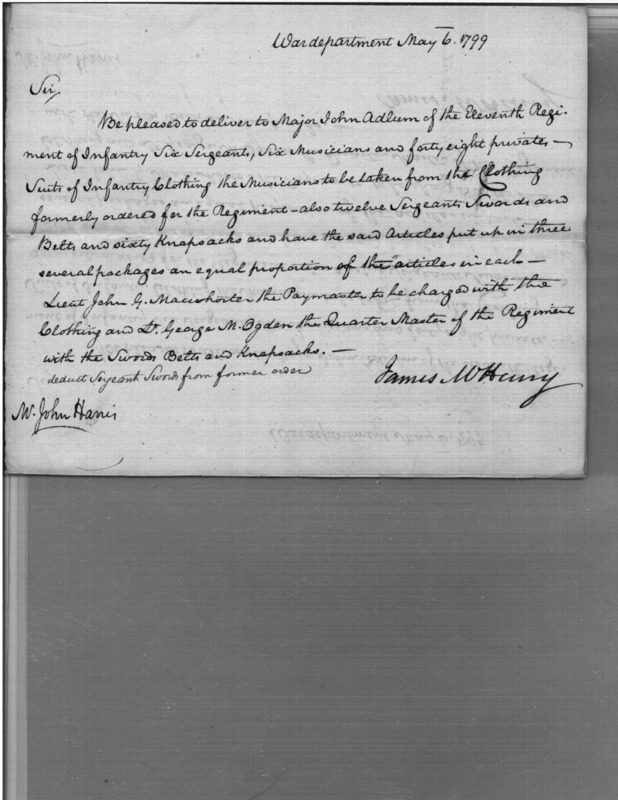 War department May 6. 1799
Sir,
Be pleased to deliver to Major John Adlum of the Eleventh Regi-
ment of Infantry Six Sergeants, Six Musicians and forty eight privates —
Suits of Infantry Clothing the Musicians to be taken from the Clothing
formerly ordered for the Regiment — also twelve Sergeants Swords and
Belts and sixty Knapsacks and have the said Articles put up in three
several packages an equal proportion of the articles in each —
Lieut John G. Macwhorter the Paymaster to be charged with the
Clothing and Lt. George M. Ogden the Quarter Master of the Regiment
with the Swords Belts and Knapsacks. —
deduct Sergeant Swords from former order
James McHenry
Mr. John Harris